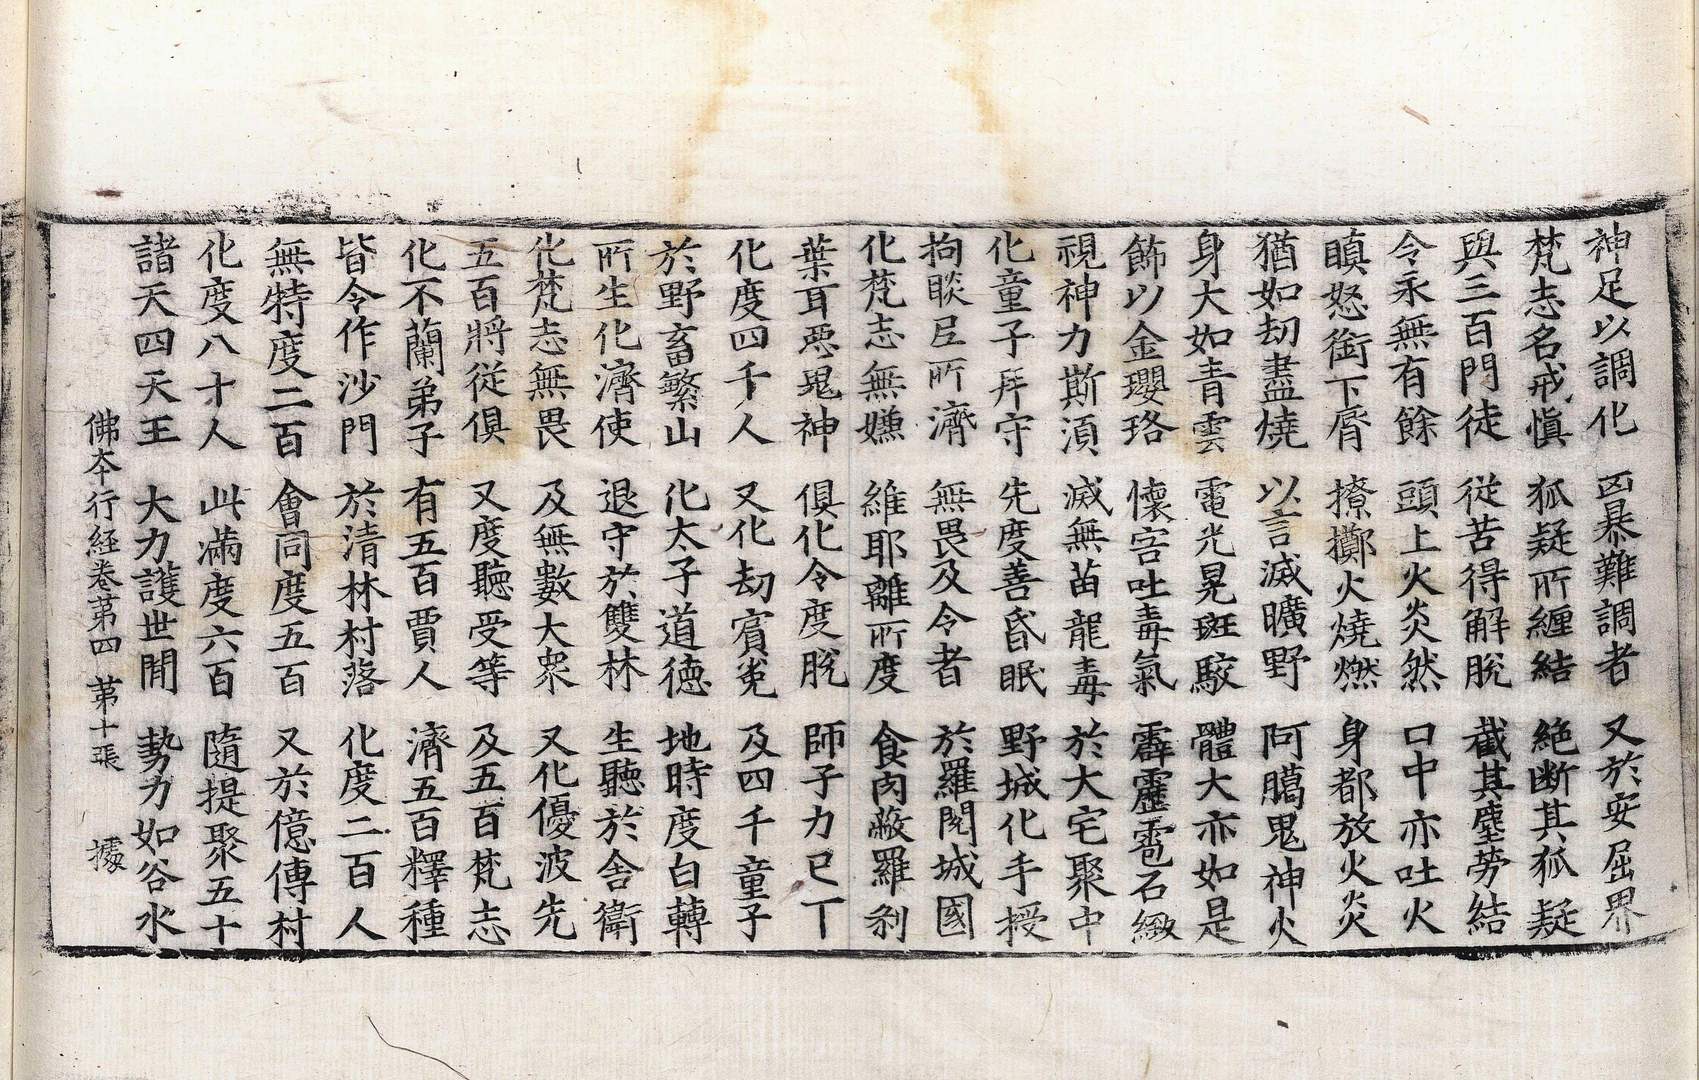 神足以調化 凶暴難調者 又於安屈界
梵志名戒愼 狐疑所纏結 絶断其狐疑
與三百門徒 從苦得解脫 截其塵勞結
令永無有餘 頭上火炎然 口中亦吐火
瞋怒銜下脣 撩擲火燒燃 身都放火炎
猶如劫盡燒 以言滅曠野 阿臈鬼神火
身大如青雲 電光晃斑駮 體大亦如是
飾以金瓔珞 懷害吐毒氣 霹靂雹石緻
視神力斯湏 滅無苗龍毒 於大宅聚中
化童子拜守 先度善昏眠 野城化手授
拘睒𫝑所濟 無畏及令者 於羅閱城國
化梵志無嫌 維耶離所度 食肉蔽羅剎
葉耳惡鬼神 俱化令度脫 師子力已丁
化度四千人 又化劫賔㝹 及四千童子
於野畜繁山 化太子道德 地時度白轉
所生化濟使 退守於雙林 生聽於舍衛
化梵志無畏 及無數大衆 又化優波先
五百將從俱 又度聽受等 及五百梵志
化不蘭弟子 有五百賈人 濟五百釋種
皆令作沙門 於清林村落 化度二百人
無特度二百 會同度五百 又於億傳村
化度八十人 此滿度六百 隨提聚五十
諸天四天王 大力護世間 勢力如谷水
佛本行經卷第四 第十張 據